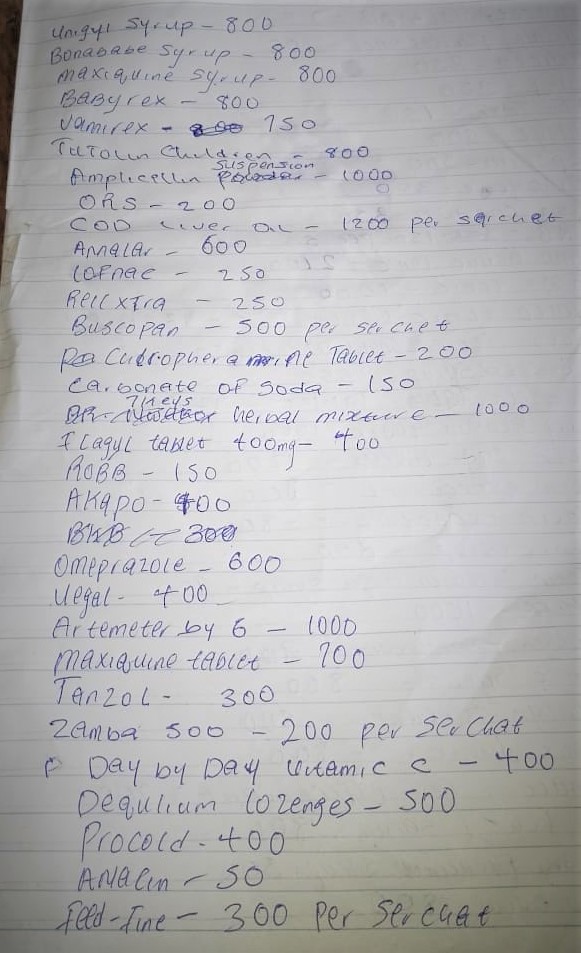 Unigyl Syrup - 800
Bonababe Syrup - 800
Maxiquine Syrup - 800
Babyrex - 800
Vamirex - 750
Tutolin Children - 800
Amplicellin suspension - 1000
ORS - 200
COD Liver OIL - 1200 per serchet
Amalar - 600
Lofnac - 250
Rellxtra - 250
Buscopan - 500 per serchet
Tablet - 200
Carbonate of Soda - 150
7 Keys herbal mixture - 1000
Flagyl tablet 400mg - 400
ROBB - 150
Akapo - 400
BKB - 300
Omeprazole - 600
Vegal - 400
Artemeter by 6 - 1000
Maxiquine tablet - 700
Tanzol - 300
Zamba 500 - 200 per Serchat
P Day by Day Vitamic C - 400
Dequlium lozenges - 500
Procold - 400
Analin - 50
Feed-Fine - 300 Per Serchat